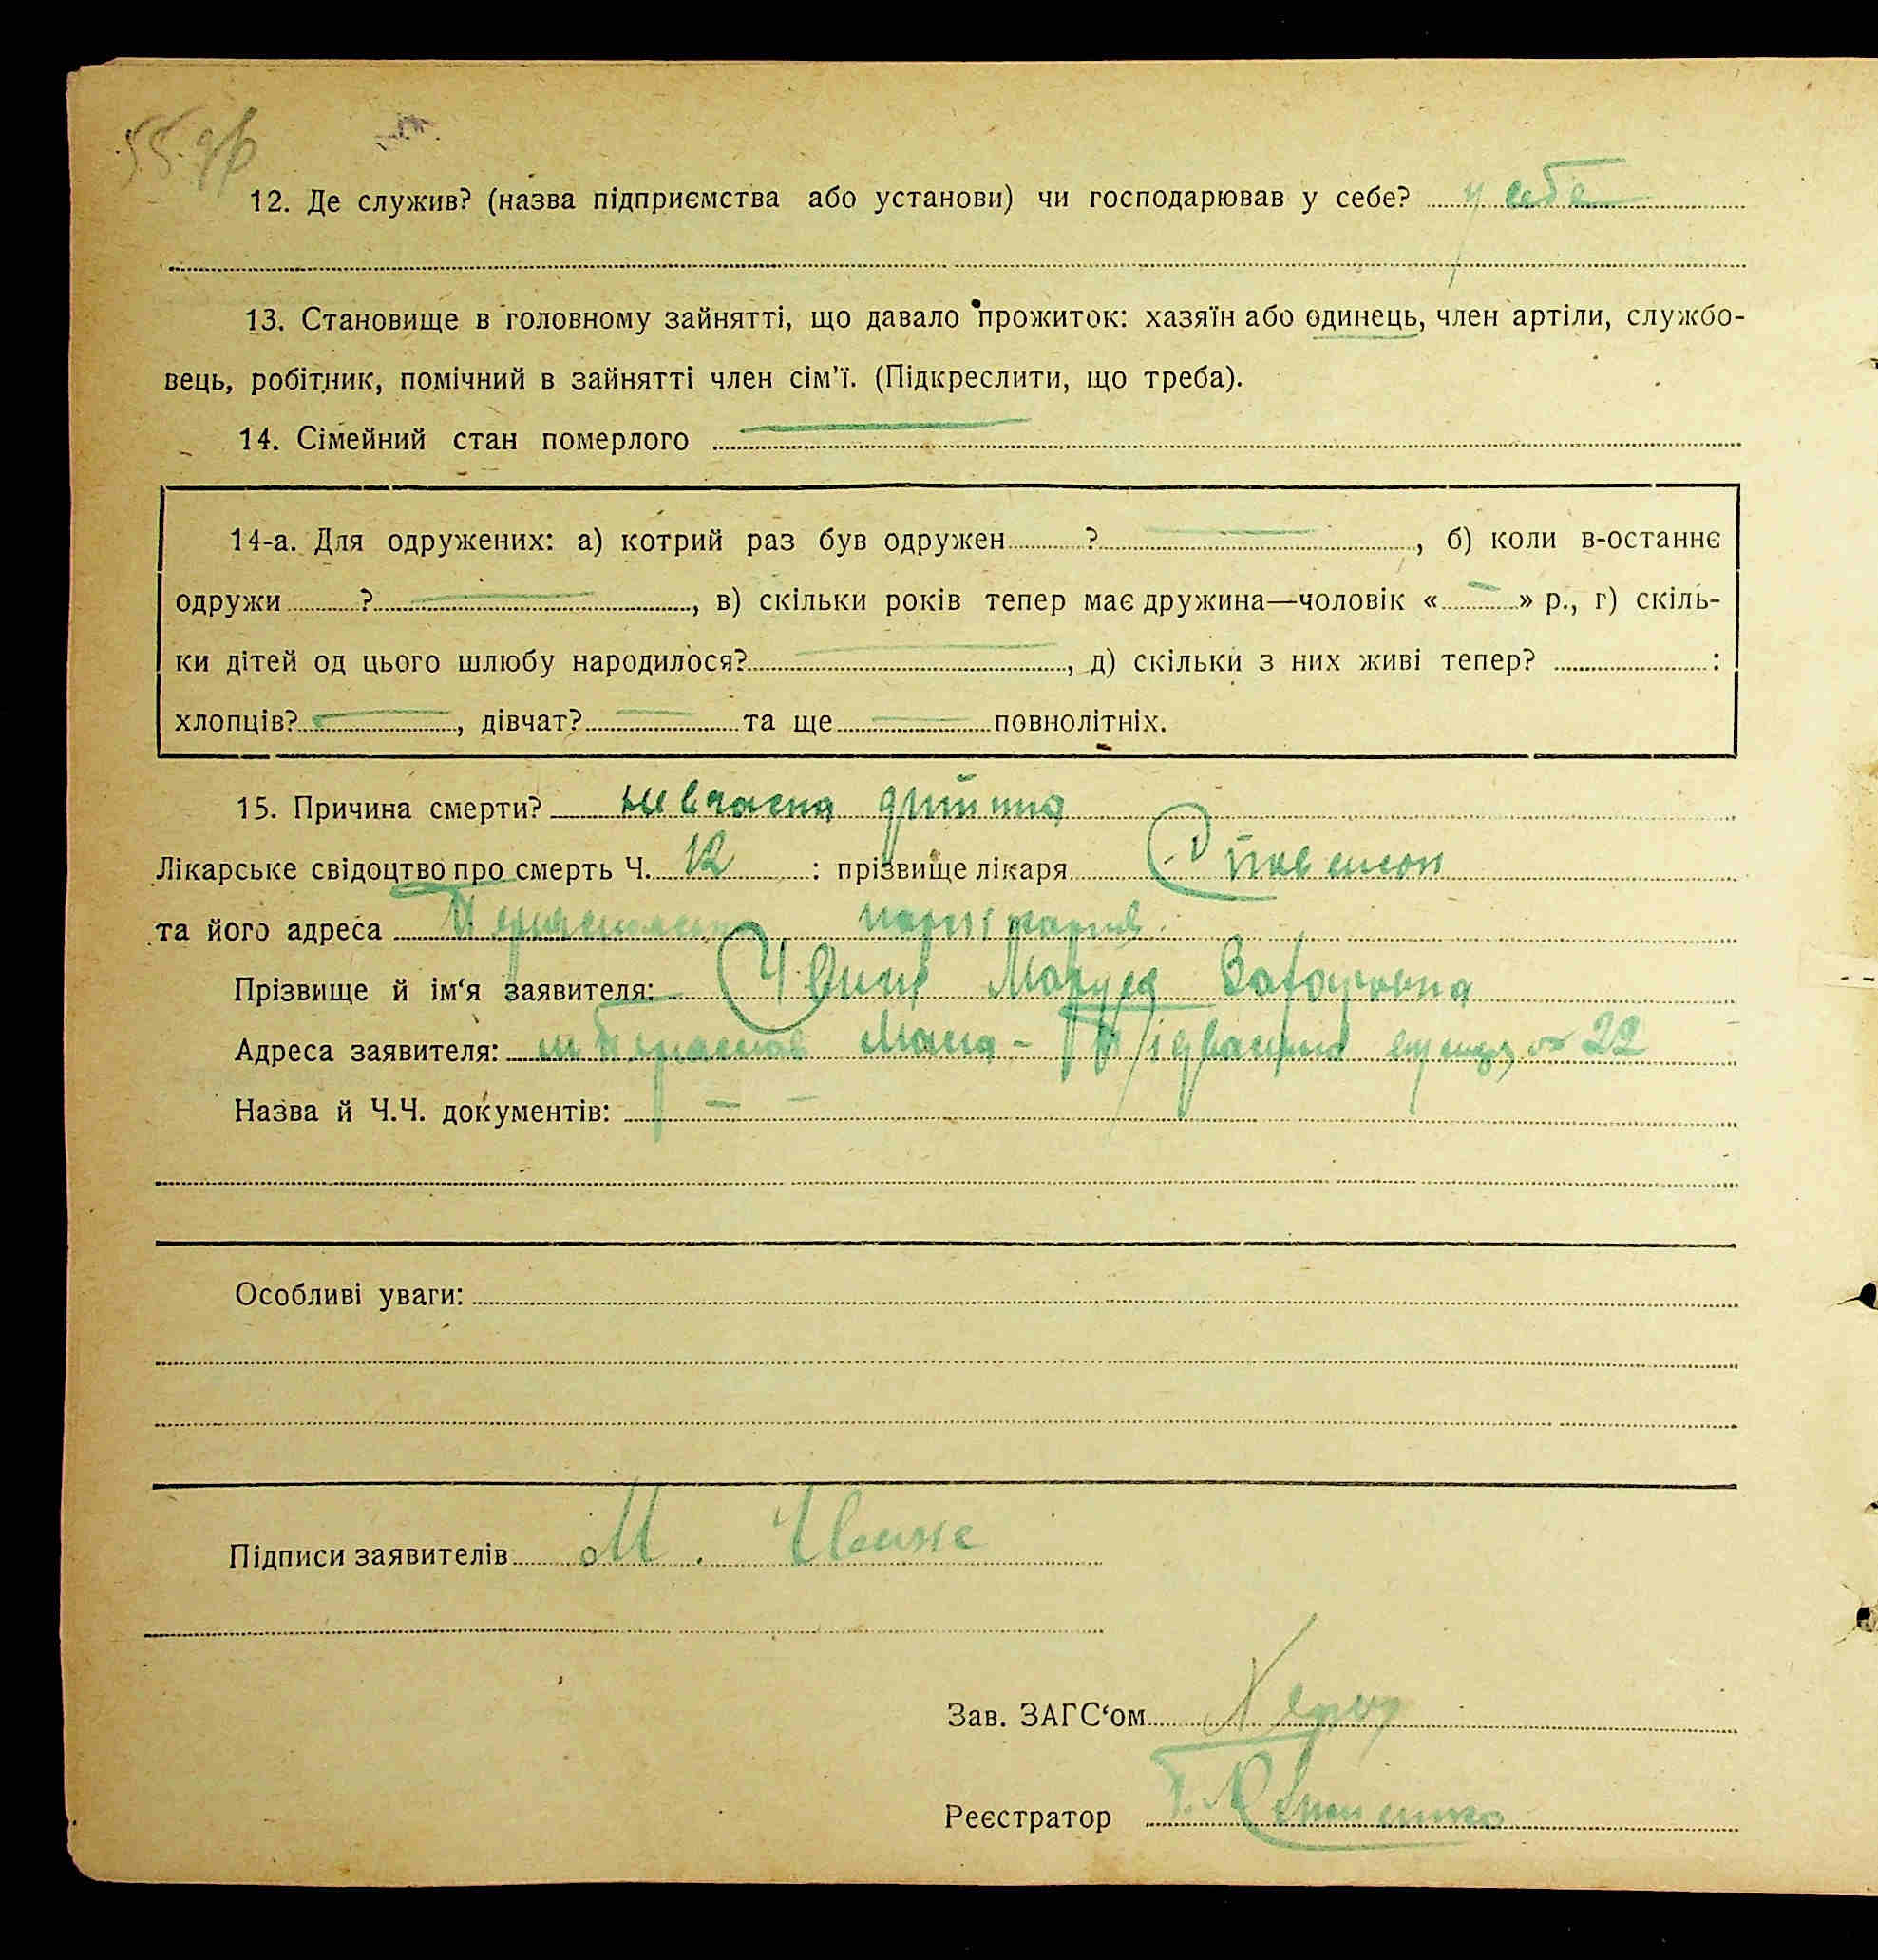 12. Де служив? (назва підприємства або установи) чи господарював у себе? у себе
13. Становище в головному зайнятті, що давало прожиток: хазяїн або одинець, член артіли, службо-
вець, робітник, помічний в зайнятті член сім'ї. (Підкреслити, що треба).
14. Сімейний стан померлого
14-а. Для одружених: а) котрий раз був одружен ?, б) коли в-останнє
одружи ?, в) скільки років тепер має дружина—чоловік « » р., г) скіль-
ки дітей од цього шлюбу народилося?, д) скільки з них живі тепер? :
хлопців?, дівчат? та ще повнолітніх.
15. Причина смерти? невчасна дитина
Лікарське свідоцтво про смерть Ч. 12 : прізвище лікаря
та його адреса
Прізвище й ім‘я заявителя:
Адреса заявителя: Мала - 22
Назва й Ч.Ч. документів: — —
Особливі уваги:
Підписи заявителів М.
Зав. ЗАГС‘ом
Реєстратор